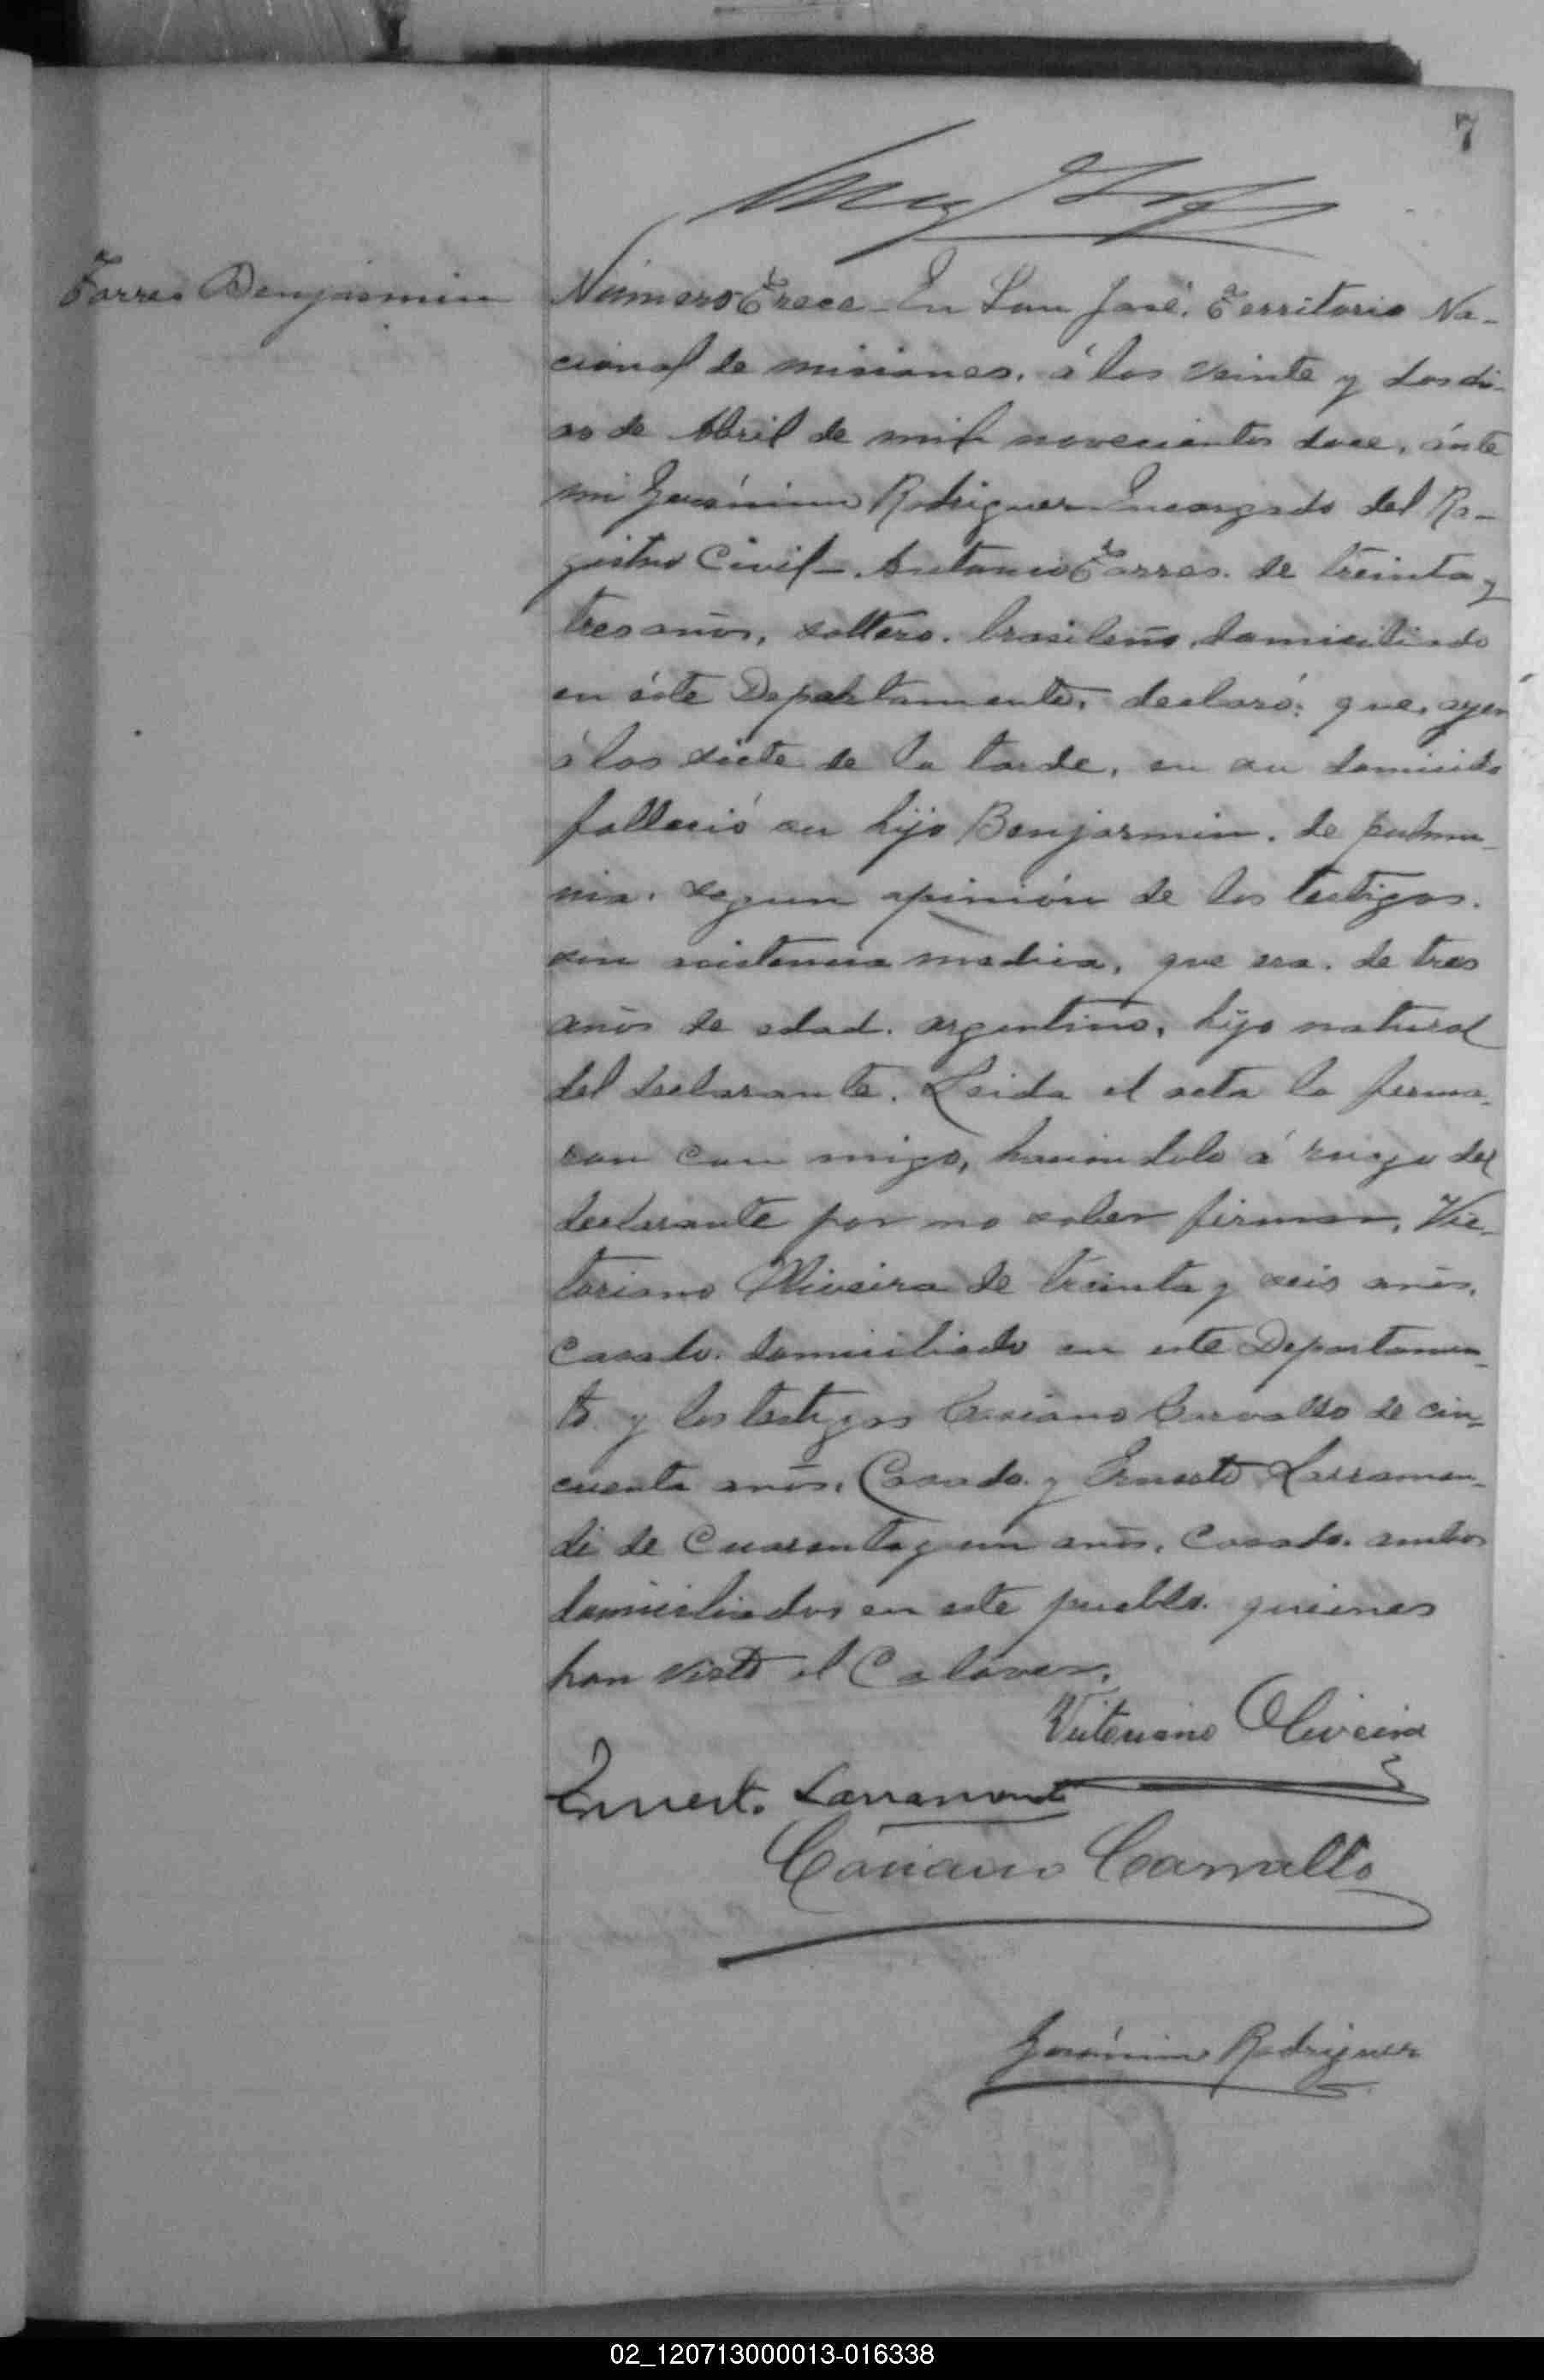 7
Torres Benjasmin
Número Trece - En San José, Territorio Na-
cional de misiones, á los veinte y dos di-
as de Abril de mil novecientos doce, ánte
mi Gerónimo Rodriguez Encargado del Re-
gistro Civil - Antonio Torres. de treinta y
tres años, soltero. brasileño, domiciliado
en éste Departamento, declaró: que, ayer
á las siete de la tarde, en su domicilio
falleció su hijo Benjasmin. de pulmo-
nia. segun opinión de los testigos.
sin asistencia medica, que era. de tres
años de edad. argentino, hijo natural
del declarante. Leida el acta la firma-
ron con migo, haciendolo á ruego del
declarante por no saber firmar, Vic-
toriano Oliveira de treinta y seis años,
casado. domiciliado en este Departamen-
to. y los testigos Casiano Carvallo de cin-
cuenta años, Casado. y Ernesto Larramen-
di de Cuarenta y un años, Casado. ambos
domiciliados en este pueblo. quienes
han visto el Cadaver.
Victoriano Oliveira
Ernesto Larramendi
Casiano Carvallo
Gerónimo Rodriguez
02_120713000013-016338